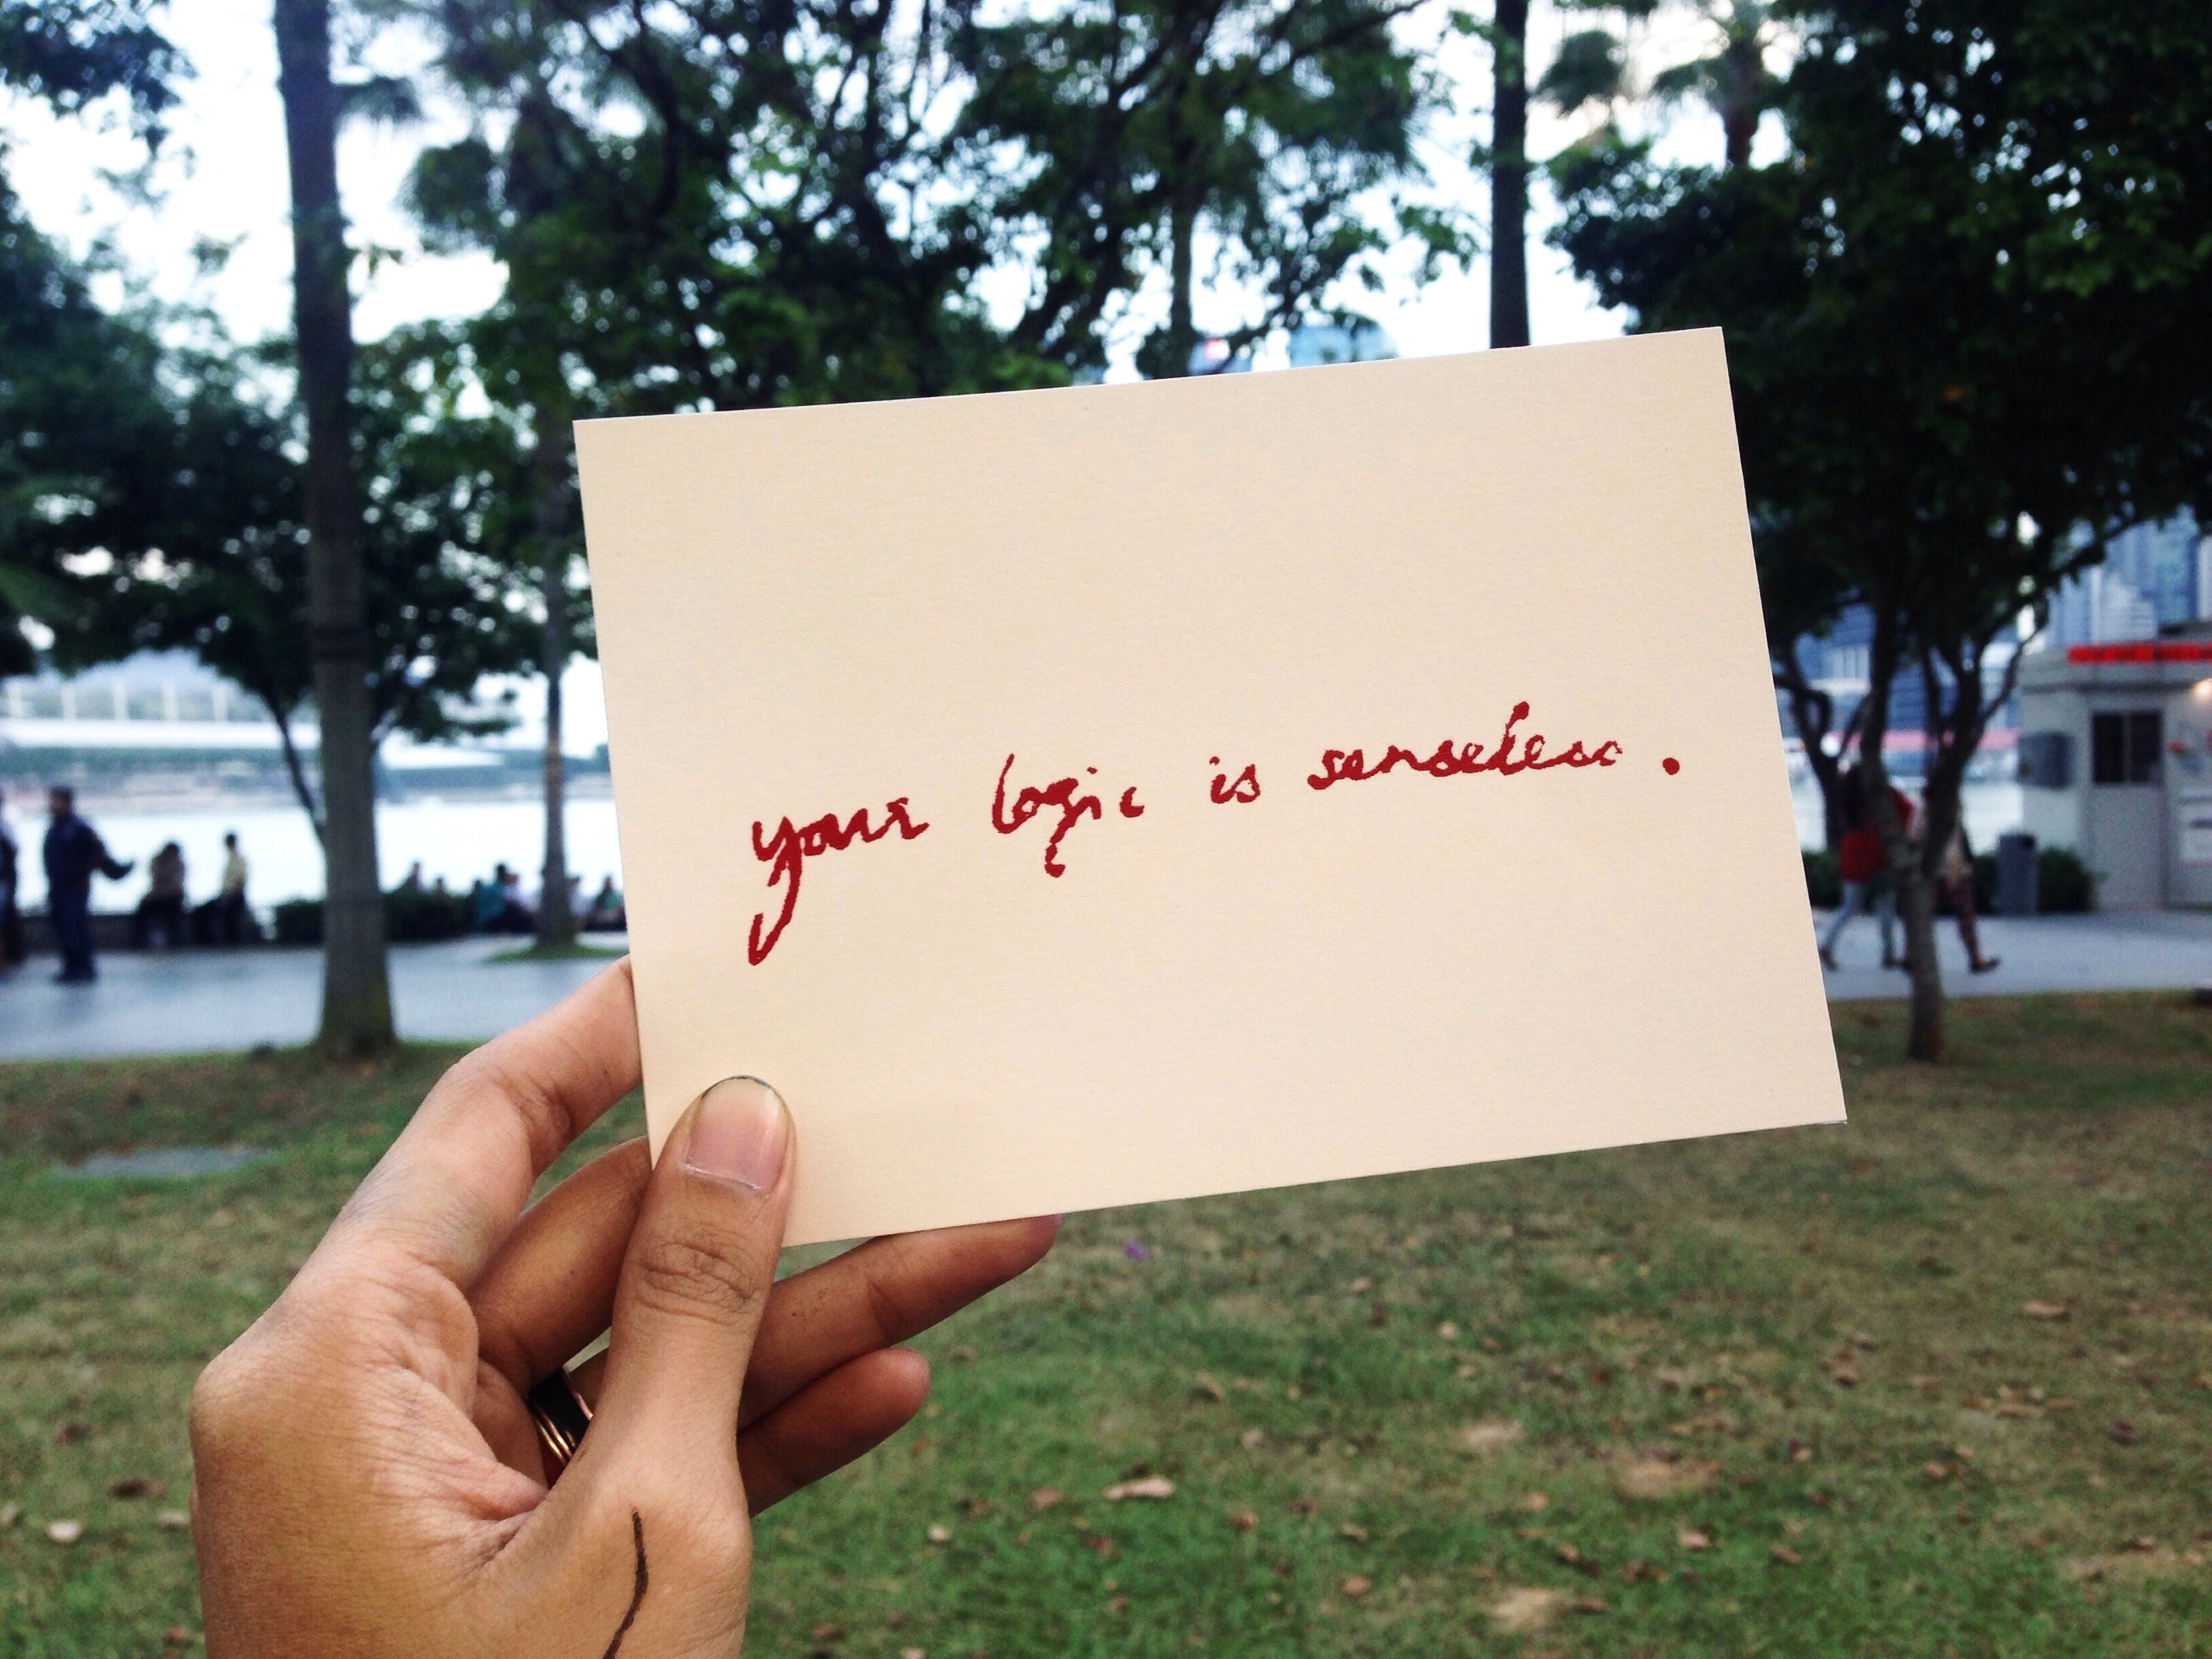 your logic is senseless.